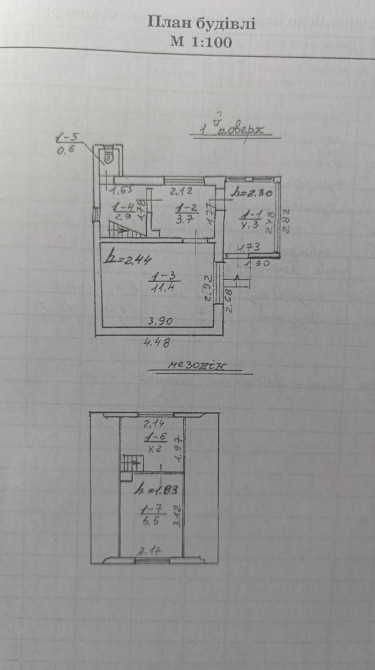 План будівлі
М 1:100
1й поверх
1-5
0.8
1.63
2.12
h=2.30
1-4
2.9
1.78
1-2
3.7
1.77
1-1
4.3
2.48
2.82
1.73
1.90
h=2.44
1-3
11.4
2.92
2.68
3.90
4.48
мезонін
2.14
1-6
4.2
1.97
h=1.83
1-7
6.6
3.12
2.17